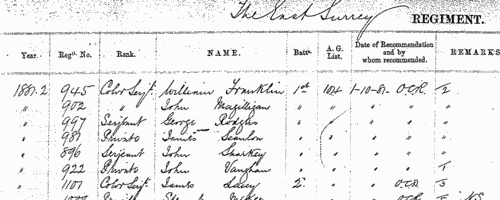 The East Surrey REGIMENT.
Year. Regtl. No. Rank. NAME. Batn. A. G. List. Date of Recommendation and by whom recommended. REMARKS
1881-2 945 Color Serjt. William Franklin 1st 104 1-10-81 O.C.R.
" 902 " John Magilligan " " " "
" 997 Serjeant George Rodgers " " " "
" 987 Private James Scanlon " " " "
" 896 Serjeant John Sharkey " " " "
" 922 Private John Vaughan " " " "
" 1101 Color Serjt. James Lacey 2 " " O.C.R.